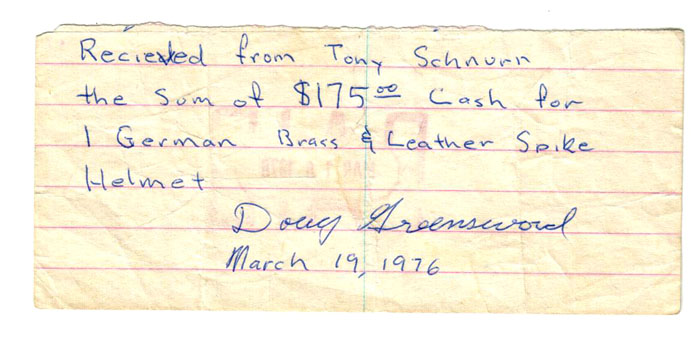 Recieved from Tony Schnurr
the Sum of $175.00 Cash for
1 German Brass & Leather Spike
Helmet
Doug Greensword
March 19, 1976